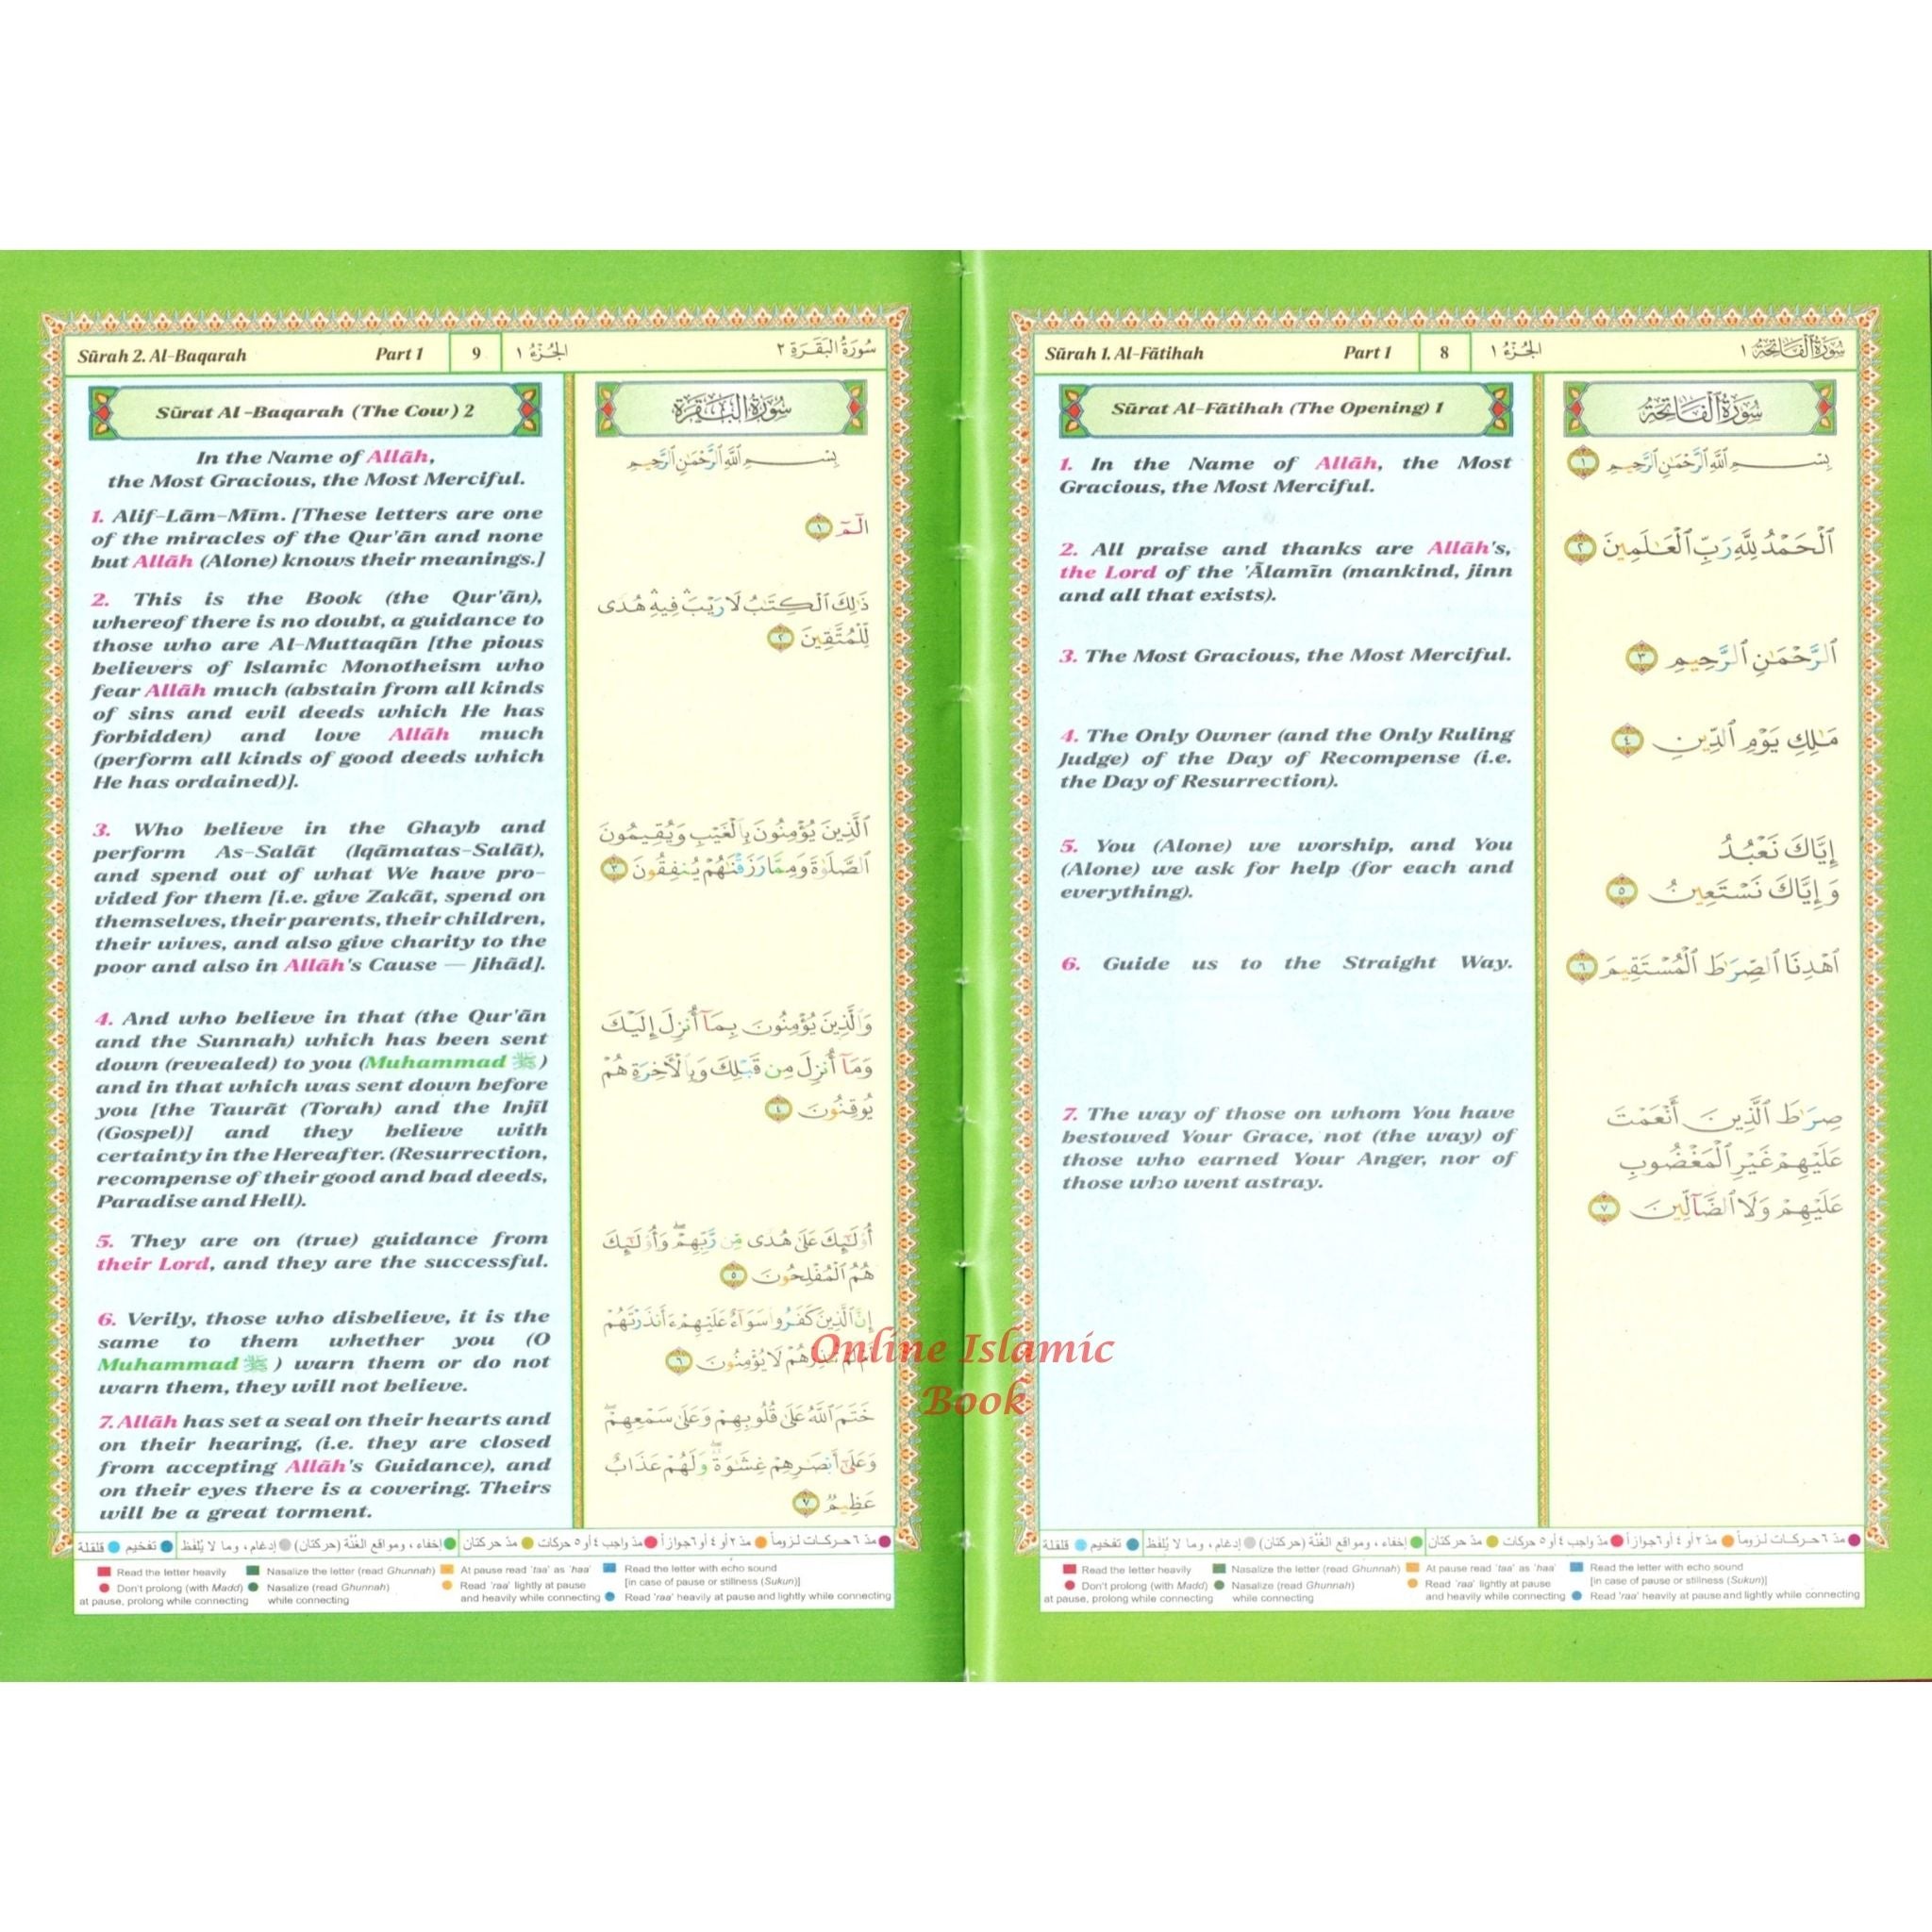 Sūrah 1. Al-Fātihah Part 1 8 الجُزْءُ ١ سُورَةُ الْفَاتِحَةِ ١
Sūrat Al-Fātihah (The Opening) 1
1. In the Name of Allāh, the Most
Gracious, the Most Merciful.
2. All praise and thanks are Allāh's,
the Lord of the 'Ālamīn (mankind, jinn
and all that exists).
3. The Most Gracious, the Most Merciful.
4. The Only Owner (and the Only Ruling
Judge) of the Day of Recompense (i.e.
the Day of Resurrection).
5. You (Alone) we worship, and You
(Alone) we ask for help (for each and
everything).
6. Guide us to the Straight Way.
7. The way of those on whom You have
bestowed Your Grace, not (the way) of
those who earned Your Anger, nor of
those who went astray.
سُورَةُ الْفَاتِحَةِ
بِسْمِ ٱللَّهِ ٱلرَّحْمَٰنِ ٱلرَّحِيمِ ١
ٱلْحَمْدُ لِلَّهِ رَبِّ ٱلْعَٰلَمِينَ ٢
ٱلرَّحْمَٰنِ ٱلرَّحِيمِ ٣
مَٰلِكِ يَوْمِ ٱلدِّينِ ٤
إِيَّاكَ نَعْبُدُ
وَإِيَّاكَ نَسْتَعِينُ ٥
ٱهْدِنَا ٱلصِّرَٰطَ ٱلْمُسْتَقِيمَ ٦
صِرَٰطَ ٱلَّذِينَ أَنْعَمْتَ
عَلَيْهِمْ غَيْرِ ٱلْمَغْضُوبِ
عَلَيْهِمْ وَلَا ٱلضَّآلِّينَ ٧
مدّ ٦ حركـات لـزوماً مدّ٢ أو ٤ أو ٦ جوازاً مدّ واجب ٤ أو ٥ حركات مدّ حركتان إخفاء، ومواقع الغُنَّة (حركتان) إدغام، وما لا يُلفَظ تفخيم قلقلة
Read the letter heavily Nasalize the letter (read Ghunnah) At pause read 'taa' as 'haa' Read the letter with echo sound
Don't prolong (with Madd) Nasalize (read Ghunnah) Read 'raa' lightly at pause [in case of pause or stillness (Sukun)]
at pause, prolong while connecting while connecting and heavily while connecting Read 'raa' heavily at pause and lightly while connecting
Sūrah 2. Al-Baqarah Part 1 9 الجُزْءُ ١ سُورَةُ البَقَرَةِ ٢
Sūrat Al-Baqarah (The Cow) 2
In the Name of Allāh,
the Most Gracious, the Most Merciful.
1. Alif-Lām-Mīm. [These letters are one
of the miracles of the Qur'ān and none
but Allāh (Alone) knows their meanings.]
2. This is the Book (the Qur'ān),
whereof there is no doubt, a guidance to
those who are Al-Muttaqūn [the pious
believers of Islamic Monotheism who
fear Allāh much (abstain from all kinds
of sins and evil deeds which He has
forbidden) and love Allāh much
(perform all kinds of good deeds which
He has ordained)].
3. Who believe in the Ghayb and
perform As-Salāt (Iqāmatas-Salāt),
and spend out of what We have pro-
vided for them [i.e. give Zakāt, spend on
themselves, their parents, their children,
their wives, and also give charity to the
poor and also in Allāh's Cause — Jihād].
4. And who believe in that (the Qur'ān
and the Sunnah) which has been sent
down (revealed) to you (Muhammad ﷺ)
and in that which was sent down before
you [the Taurāt (Torah) and the Injīl
(Gospel)] and they believe with
certainty in the Hereafter. (Resurrection,
recompense of their good and bad deeds,
Paradise and Hell).
5. They are on (true) guidance from
their Lord, and they are the successful.
6. Verily, those who disbelieve, it is the
same to them whether you (O
Muhammad ﷺ) warn them or do not
warn them, they will not believe.
7. Allāh has set a seal on their hearts and
on their hearing, (i.e. they are closed
from accepting Allāh's Guidance), and
on their eyes there is a covering. Theirs
will be a great torment.
سُورَةُ البَقَرَةِ
بِسْمِ ٱللَّهِ ٱلرَّحْمَٰنِ ٱلرَّحِيمِ
الٓمٓ ١
ذَٰلِكَ ٱلْكِتَٰبُ لَا رَيْبَ ۛ فِيهِ ۛ هُدًى
لِّلْمُتَّقِينَ ٢
ٱلَّذِينَ يُؤْمِنُونَ بِٱلْغَيْبِ وَيُقِيمُونَ
ٱلصَّلَوٰةَ وَمِمَّا رَزَقْنَٰهُمْ يُنفِقُونَ ٣
وَٱلَّذِينَ يُؤْمِنُونَ بِمَآ أُنزِلَ إِلَيْكَ
وَمَآ أُنزِلَ مِن قَبْلِكَ وَبِٱلْأَخِرَةِ هُمْ
يُوقِنُونَ ٤
أُو۟لَٰٓئِكَ عَلَىٰ هُدًى مِّن رَّبِّهِمْ ۖ وَأُو۟لَٰٓئِكَ
هُمُ ٱلْمُفْلِحُونَ ٥
إِنَّ ٱلَّذِينَ كَفَرُوا۟ سَوَآءٌ عَلَيْهِمْ ءَأَنذَرْتَهُمْ
أَمْ لَمْ تُنذِرْهُمْ لَا يُؤْمِنُونَ ٦
خَتَمَ ٱللَّهُ عَلَىٰ قُلُوبِهِمْ وَعَلَىٰ سَمْعِهِمْ ۖ
وَعَلَىٰٓ أَبْصَٰرِهِمْ غِشَٰوَةٌ ۖ وَلَهُمْ عَذَابٌ
عَظِيمٌ ٧
مدّ ٦ حركـات لـزوماً مدّ٢ أو ٤ أو ٦ جوازاً مدّ واجب ٤ أو ٥ حركات مدّ حركتان إخفاء، ومواقع الغُنَّة (حركتان) إدغام، وما لا يُلفَظ تفخيم قلقلة
Read the letter heavily Nasalize the letter (read Ghunnah) At pause read 'taa' as 'haa' Read the letter with echo sound
Don't prolong (with Madd) Nasalize (read Ghunnah) Read 'raa' lightly at pause [in case of pause or stillness (Sukun)]
at pause, prolong while connecting while connecting and heavily while connecting Read 'raa' heavily at pause and lightly while connecting
Online Islamic
Book